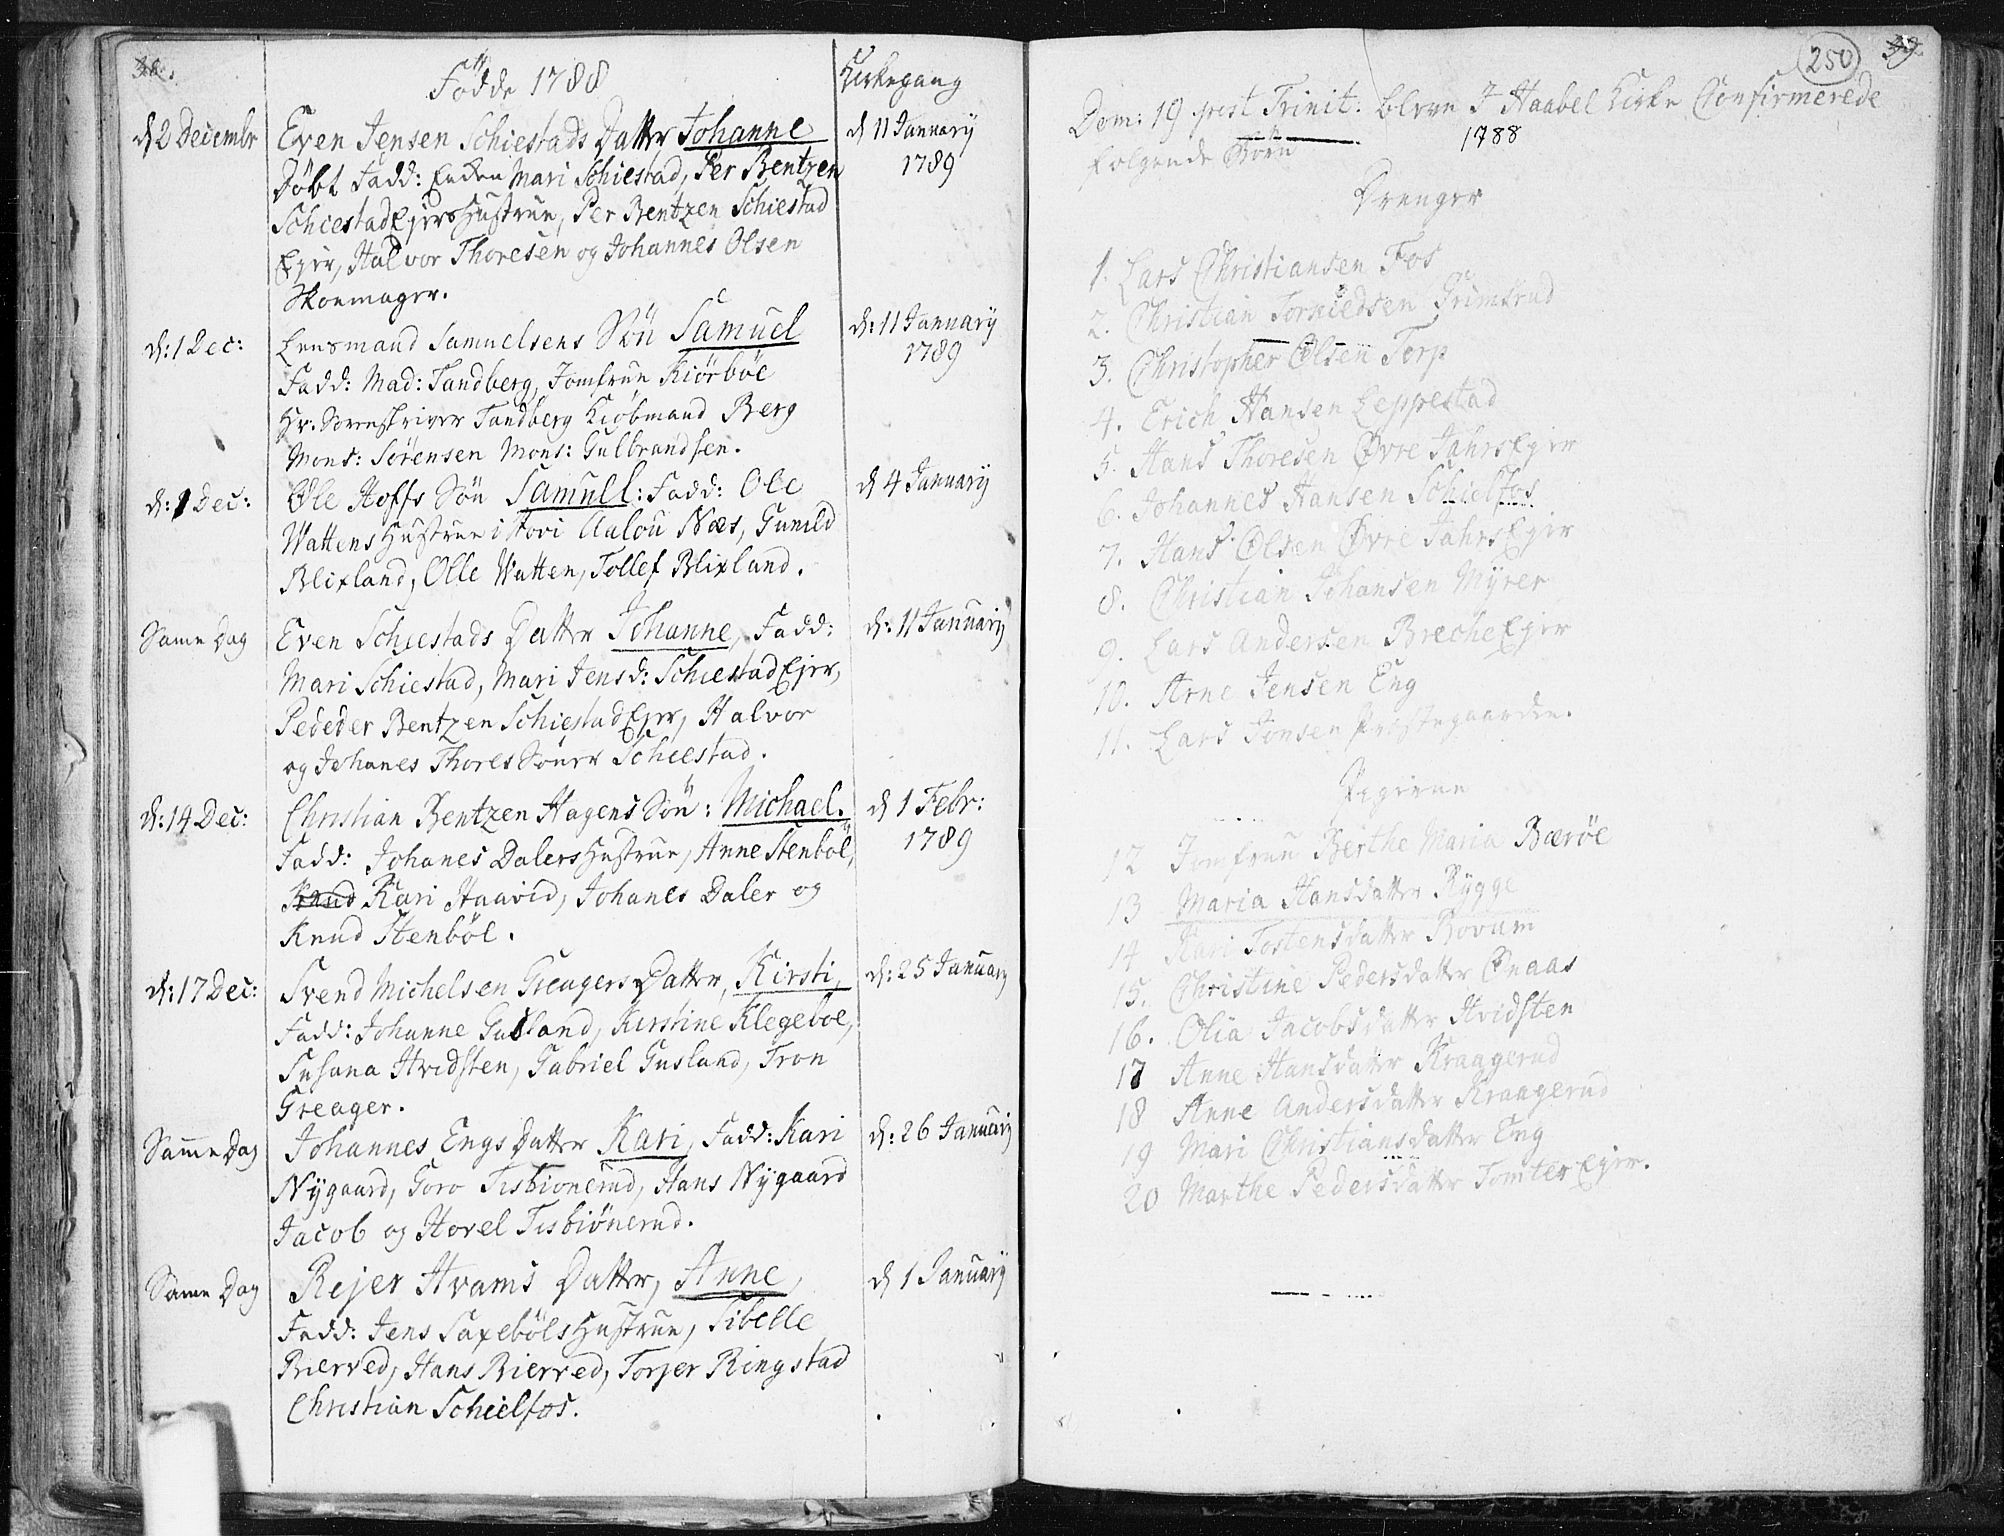 38.
Fødde 1788
Kirkegang
d 2 Decembr
Even Jensen Schiestads Datter Johanne
d 11 January
1789
Døbt Fadd: Enken Mari Schiestad, Per Bentzen
SchiestadEjers Hustrue, Per Bentzen Schiestad
Ejer, Halvor Thoresen og Johannes Olsen
Skoemager.
d: 1 Dec:
Lensmand Samuelsens Søn Samuel
d: 11 January
1789
Fadd: Mad: Tandberg, Jomfrue Kiørböe
Hr. Sorenskriver Tandberg Kiøbmand Berg
Mons: Sörensen Mons: Gulbrandsen.
d: 1 Dec:
Ole Hoffs Søn Samuel: Fadd: Ole
d 4 January
Wattens Hustrue i Hovi Aalou Næs, Gunild
Blixland, Olle Watten, Tollef Blixland.
Same Dag
Even Schiestads Datter Johanne, Fadd:
d: 11 January
Mari Schiestad, Mari Jensd: Schiestad Ejer,
Pededer Bentzen Schiestad Ejer, Halvor
og Johanes Thores Sønner Schiestad.
d: 14 Dec:
Christian Bentzen Hagens Søn: Michael.
d 1 Febr:
1789
Fadd: Johanes Dalers Hustrue, Anne Stenböl,
Knud Kari Haavid, Johanes Daler og
Knud Stenböl.
d: 17 Dec:
Svend Michelsen Greagers Datter, Kirsti,
d: 25 January
Fadd: Johanne Gusland, Kirstine Klegeboe,
Susana Hvidsten, Gabriel Gusland, Tron
Greager.
Same Dag
Johannes Engs Datter Kari, Fadd: Kari
d: 26 January
Nÿgaard, Goro Tisbionerud, Hans Nÿgaard
Jacob og Hovel Tisbiönerud.
Same Dag
Rejer Hvams Datter, Anne,
d 1 January
Fadd: Jens Saxeböls Hustrue, Sibelle
Bierved, Hans Bierved, Torjer Ringstad
Christian Schielfos.
250
39
Dom: 19 post Trinit: bleve I Haabel Kirke Confirmerede
følgende Börn
1788
Drenger
1. Lars Christiansen Fos
2. Christian Torkieldsen Grimsrud
3. Christopher Olsen Torp
4. Erich Hansen Leppestad
5. Hans Thoresen Øvre Jahrs Ejer
6. Johannes Hansen Schielfos
7. Hans Olsen Øvre Jahrs Ejer
8. Christian Johansen Mÿrer
9. Lars Andersen Breche Ejer
10. Arne Jensen Eng
11. Lars Jonsen Præstegaarden.
Pigerne
12 Jomfrue Berthe Maria Bæröe
13 Maria Hansdatter Rÿgge
14 Kari Tostensdatter Rovum
15. Christine Pedersdatter Onaas
16. Olia Jacobsdatter Hvidsten
17 Anne Hansdatter Kraagerud
18 Anne Andersdatter Kraagerud
19 Mari Christiansdatter Eng
20 Marthe Pedersdatter Tomter Ejer.